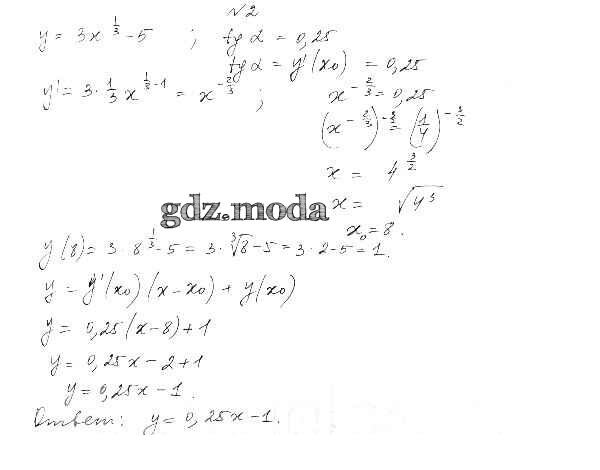 №2
y = 3x^{1/3} - 5 ; tg α = 0,25
tg α = y'(x₀) = 0,25
y' = 3 · 1/3 x^{1/3 - 1} = x^{-2/3} ; x^{-2/3} = 0,25
(x^{-2/3})^{-3/2} = (1/4)^{-3/2}
x = 4^{3/2}
x = √4³
gdz.moda
x₀ = 8.
y(8) = 3 · 8^{1/3} - 5 = 3 · ∛8 - 5 = 3 · 2 - 5 = 1.
y = y'(x₀)(x - x₀) + y(x₀)
y = 0,25(x - 8) + 1
y = 0,25x - 2 + 1
y = 0,25x - 1.
Ответ: y = 0,25x - 1.